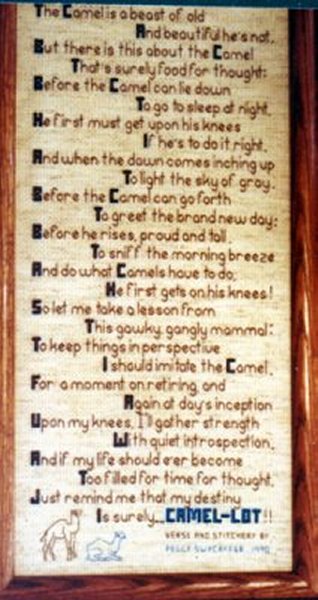 The Camel is a beast of old
And beautiful he's not,
But there is this about the Camel
That's surely food for thought:
Before the Camel can lie down
To go to sleep at night,
He first must get upon his knees
If he's to do it right.
And when the dawn comes inching up
To light the sky of gray,
Before the Camel can go forth
To greet the brand new day;
Before he rises, proud and tall,
To sniff the morning breeze
And do what Camels have to do,
He first gets on his knees!
So let me take a lesson from
This gawky, gangly mammal:
To keep things in perspective
I should imitate the Camel.
For a moment on retiring, and
Again at day's inception
Upon my knees, I'll gather strength
With quiet introspection,
And if my life should e'er become
Too filled for time for thought,
Just remind me that my destiny
Is surely... CAMEL-LOT!!
VERSE AND STITCHERY BY
PEGGY 1990